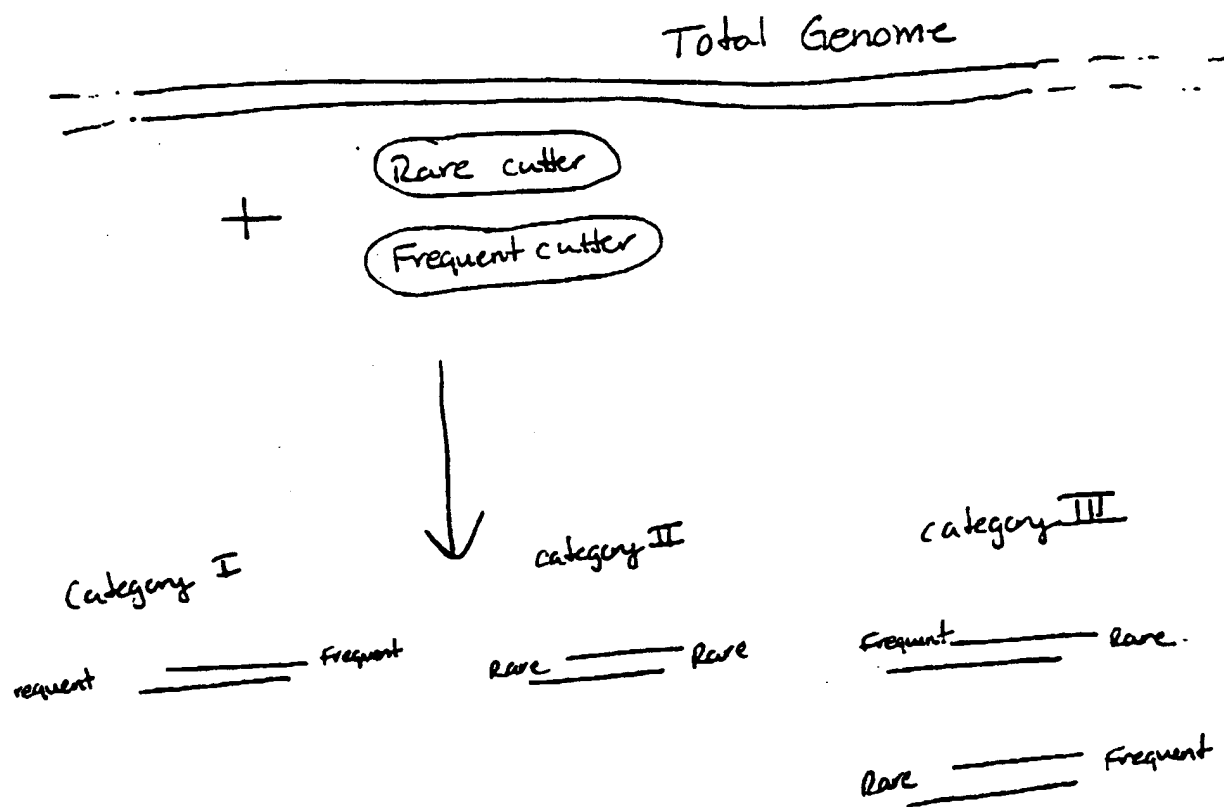 Total Genome
Rare cutter
+
Frequent cutter
Category I
category II
category III
requent
Frequent
Rare
Rare
Frequent
Rare.
Rare
Frequent